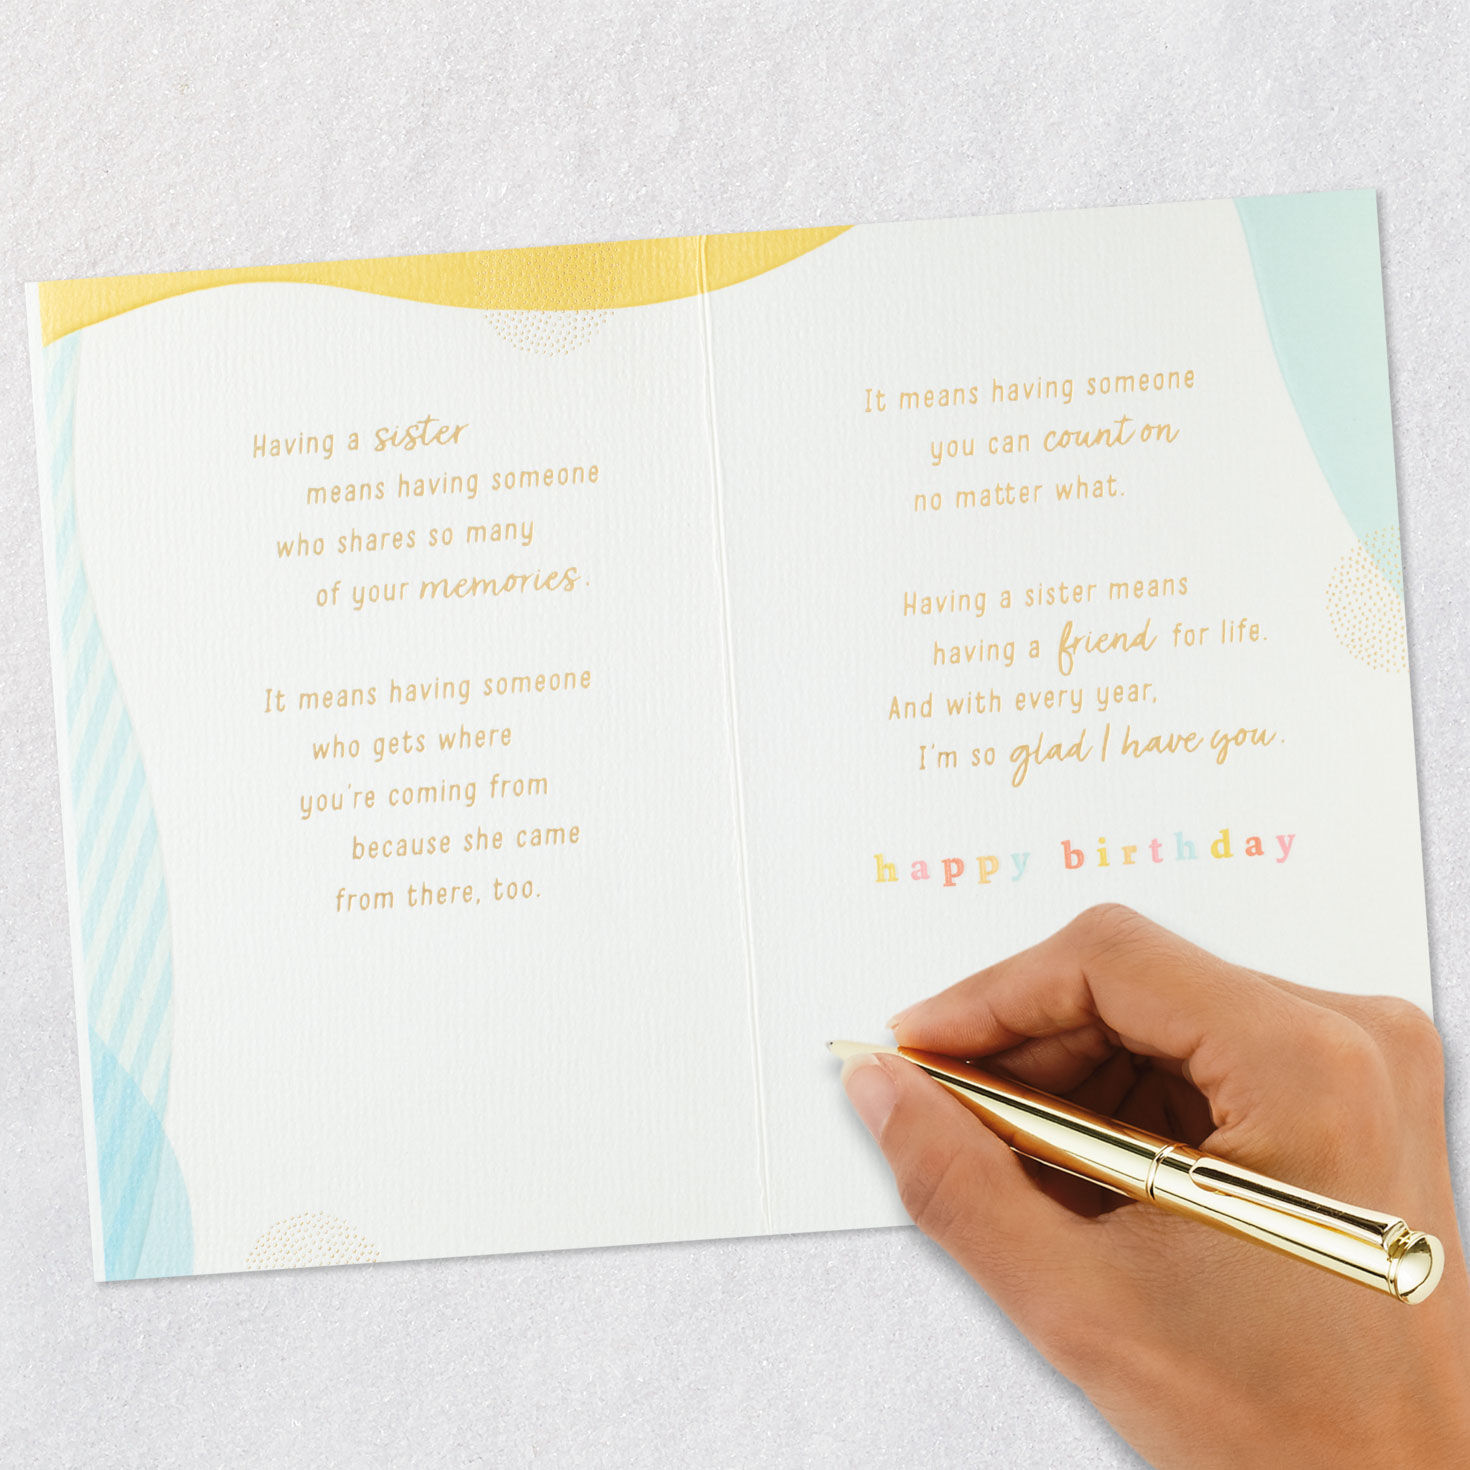 Having a sister
means having someone
who shares so many
of your memories.
It means having someone
who gets where
you're coming from
because she came
from there, too.
It means having someone
you can count on
no matter what.
Having a sister means
having a friend for life.
And with every year,
I'm so glad I have you.
happy birthday